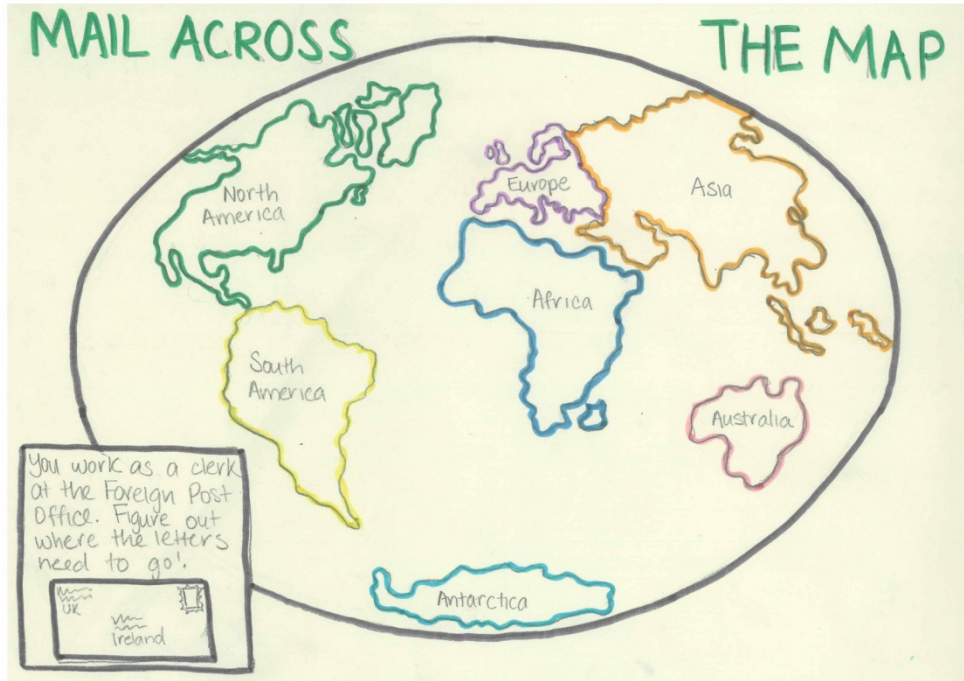 MAIL ACROSS THE MAP
North
America
Europe
Asia
Africa
South
America
Australia
Antarctica
You work as a clerk
at the Foreign Post
Office. Figure out
where the letters
need to go!
UK
Ireland